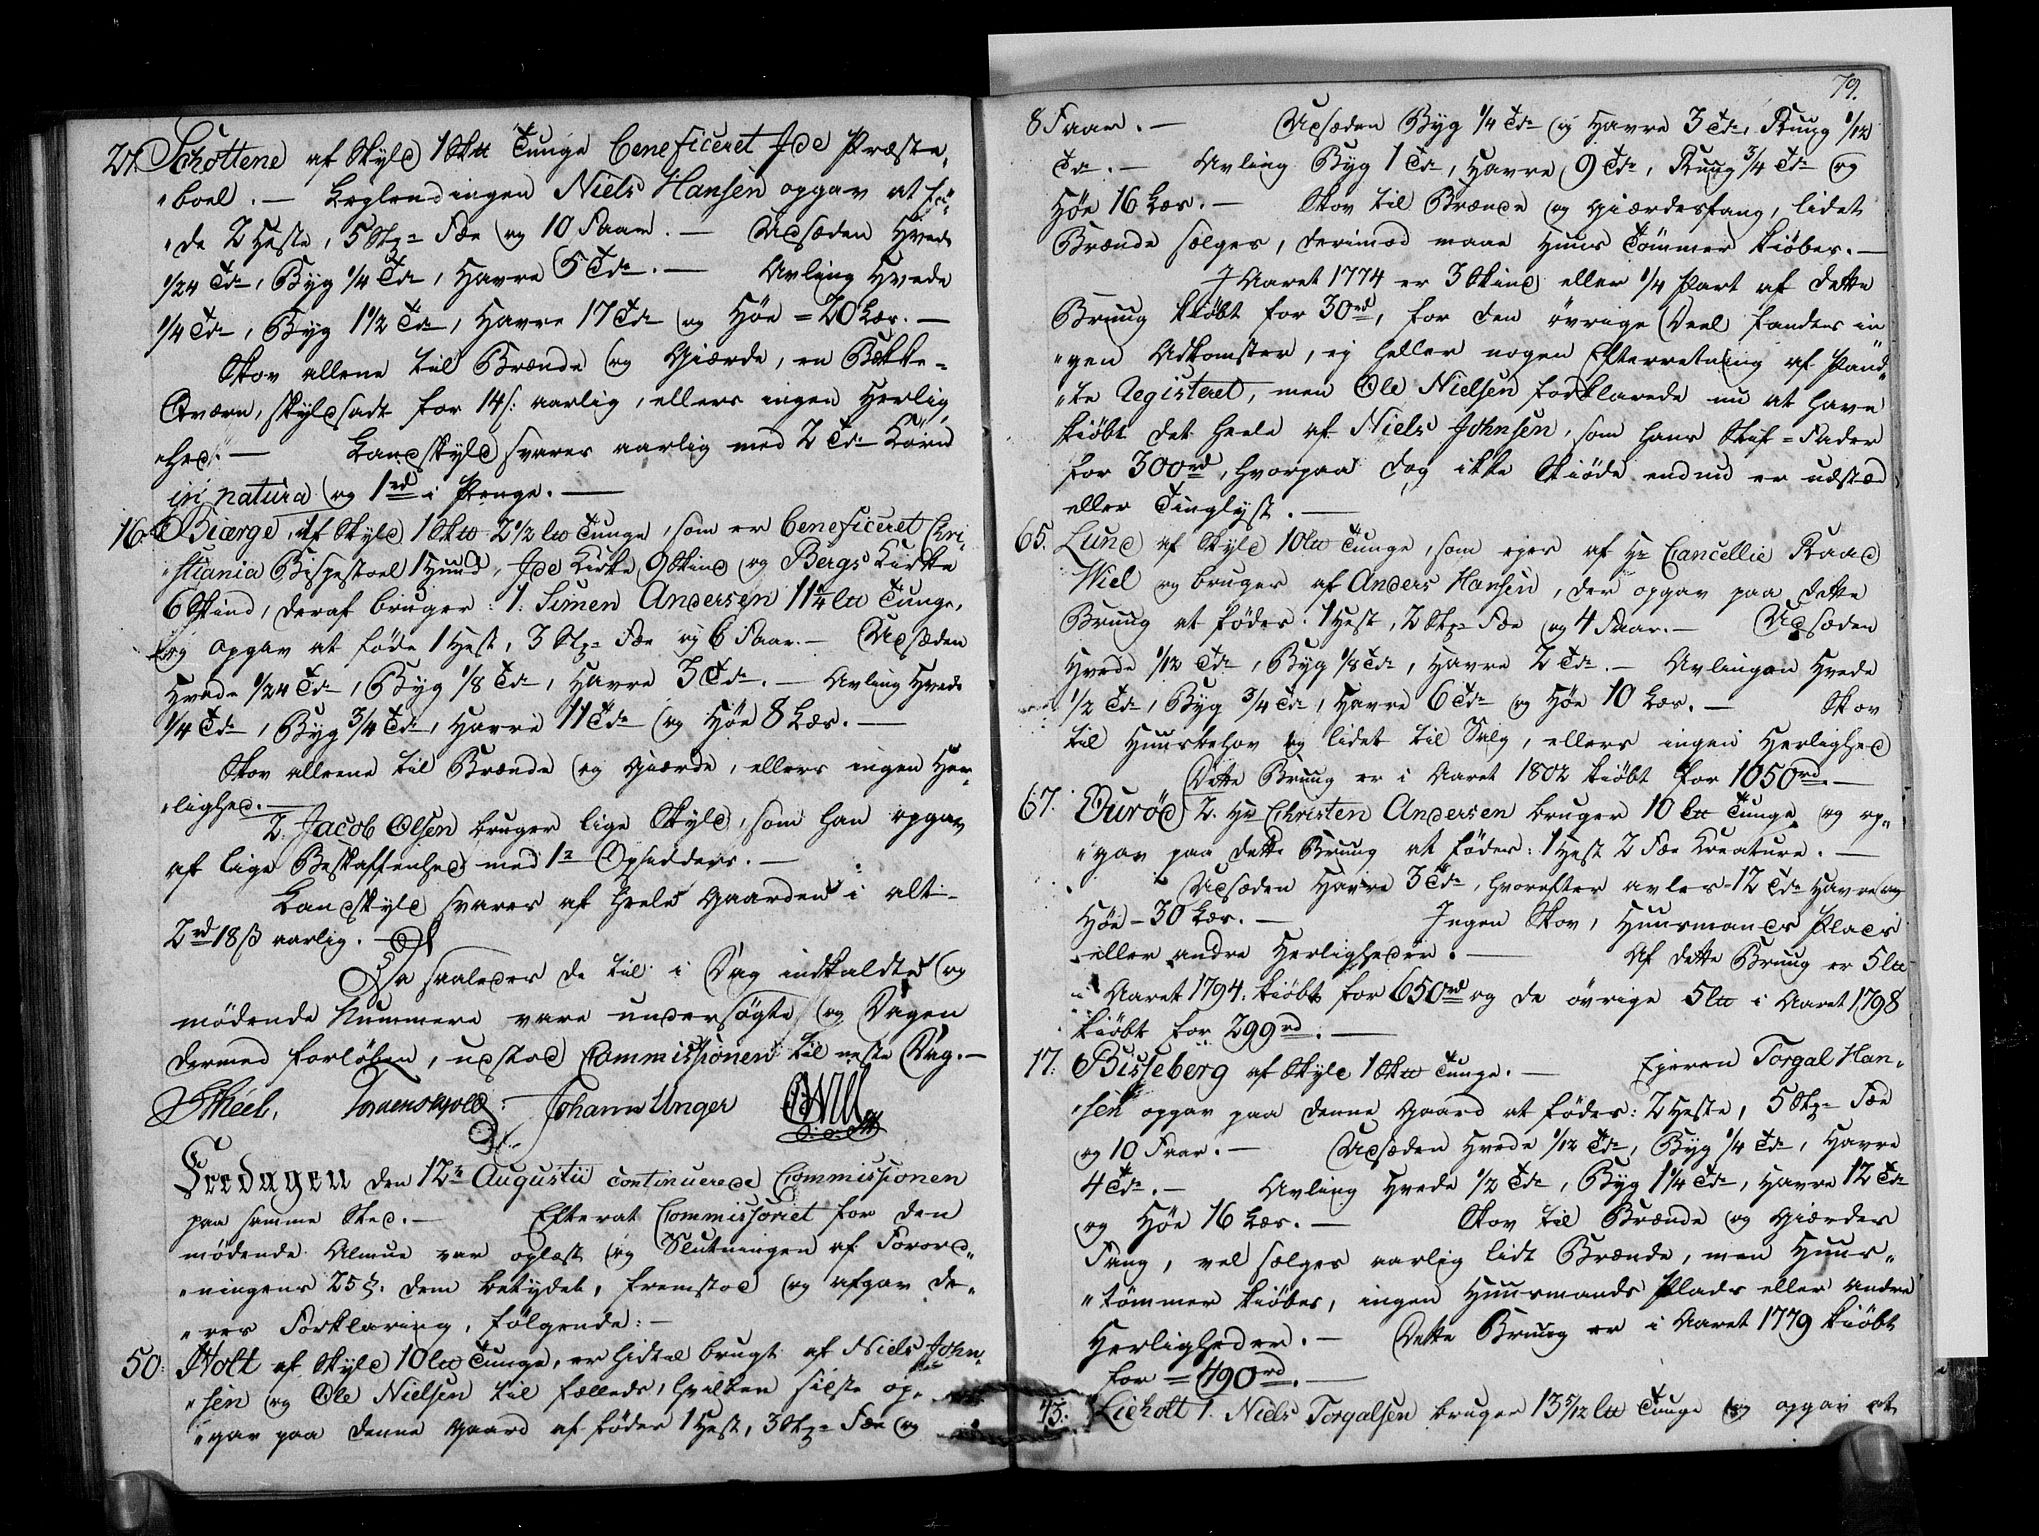 21. Schottene af Skyld 1 Sk℔ Tunge beneficeret Ide Præste-
"boel. — Leglendingen Niels Hansen opgav at fö-
"de 2 Heste, 5 Stk= Fæe og 10 Faar. — Udsæden Hvede
1/24 Tde, Byg 1/4 Tde, Havre 5 Tde. — Avling Hvede
1/4 Tde, Byg 1 1/2 Tde, Havre 17 Tde og Höe = 20 Læs. —
Skov allene til Brænde og Gierde, en Bekke-
Qværn, skyldsadt for 14 s: aarlig, ellers ingen Herlig-
"hed. — Landskyld svares aarlig med 2 Tde Korn
in natura og 1 rd i Penge. —
16. Biærge, af Skyld 1 Sk℔ 2 1/2 l℔ Tunge, som er beneficeret Chri-
"stiania Bispestoel 1 Hund, Ide Kirke 9 Skind og Bergs Kirke
6 Skind, deraf bruger: 1. Simen Andersen 11 1/4 l℔ Tunge,
og opgav at föde 1 Hest, 3 Stk= Fæe og 6 Faar. — Udsæden
Hvede 1/24 Tde, Byg 1/8 Tde, Havre 3 Tde. — Avling Hvede
1/4 Tde, Byg 3/4 Tde, Havre 11 Tde og Höe 8 Læs. —
Skov alleene til Brænde og Giærde, ellers ingen Her-
"lighed. —
2. Jacob Olsen bruger lige Skyld, som han opgav
af lige Beskaffenhed med 1te Opsidders. —
Landskyld svares af heele Gaarden i alt
2 rd 18 ß aarlig. —
Da saaledes de til i Dag indkaldte og
mödende Nummere vare undersögte og Dagen
dermed forlöben, udstod Commissionen til neste Dag. —
Skeel. Tordenskjold. Johann Unger OWill
Fredagen den 12te Augustii continuerede Commissionen
paa samme Sted. — Efterat Commissoriet for den
mödende Almue var oplæst og Slutningen af Forord-
"ningens 25 §. dem betydet, fremstod og afgav de-
"res Forklaring, fölgende: —
50: Holt af Skyld 10 l℔ Tunge, er hidtil brugt af Niels John-
"sen og Ole Nielsen til fælleds, hvilken sidste op-
"gav paa denne Gaard at födes 1 Hest, 3 Stk= Fæe og
79.
8 Faar. — Udsæden Byg 1/4 Tde og Havre 3 Tde, Rug 1/12
Tde. — Avling Byg 1 Tde, Havre 9 Tde, Rug 3/4 Tde og
Höe 16 Læs. — Skov til Brænde og Giærdesfang, lidet
Brænde sælges, derimod maae Huus Tömmer kiöbes. —
I Aaret 1774 er 3 Skind eller 1/4 Part af dette
Bruug kiöbt for 30 rd, for den övrige Deel fandtes in
"gen Adkomster, ej heller nogen Efterretning af Pan-
"te Registeret, men Ole Nielsen forklarede nu at have
kiöbt det heele af Niels Johnsen, som hans Stif=Fader
for 300 rd, hvorpaa dog ikke Skiöde endnu er udsted
eller Tinglyst. —
65. Lund af Skyld 10 l℔ Tunge, som ejes af Hr Cancellie Raad
Wiel og bruges af Anders Hansen, der opgav paa dette
Bruug at födes: 1 Hest, 2 Stk= Fæe og 4 Faar. — Udsæden
Hvede 1/12 Tde, Byg 1/8 Tde, Havre 2 Tde. — Avlingen Hvede
1/2 Tde, Byg 3/4 Tde, Havre 6 Tde og Höe 10 Læs. — Skov
til Huusbehov og lidet til Salg, ellers ingen Herlighed
Dette Bruug er i Aaret 1802 kiöbt for 1050 rd. —
67. Ouröd 2. Hr Christen Andersen bruger 10 l℔ Tunge og op-
"gav paa dette Bruug at födes: 1 Hest 2 Fæe Kreature. —
Udsæden Havre 3 Tde, hvorefter avles 12 Tde Havre og
Höe — 30 Læs. — Ingen Skov, Huusmands Plads
eller andre Herligheder. — Af dette Bruug er 5 l℔
i Aaret 1794. kiöbt for 650 rd og de övrige 5 l℔ i Aaret 1798
kiöbt for 299 rd. —
17. Bisseberg af Skyld 1 Sk℔ Tunge. — Ejeren Torgal Han-
"sen opgav paa denne Gaard at födes: 2 Heste, 5 Stk= Fæe
og 10 Faar. — Udsæden Hvede 1/12 Tde, Byg 1/4 Tde, Havre
4 Tde. — Avling Hvede 1/2 Tde, Byg 1 1/4 Tde, Havre 12 Tde
og Höe 16 Læs. — Skov til Brænde og Giærdes
Fang, vel sælges aarlig lidt Brænde, men Huus-
"tömmer kiöbes, ingen Huusmands Plads eller andre
Herligheder. — Dette Bruug er i Aaret 1779 kiöbt
for = 490 rd. —
43. Lieholt 1. Niels Torgalsen bruger 13 5/12 l℔ Tunge og opgav at